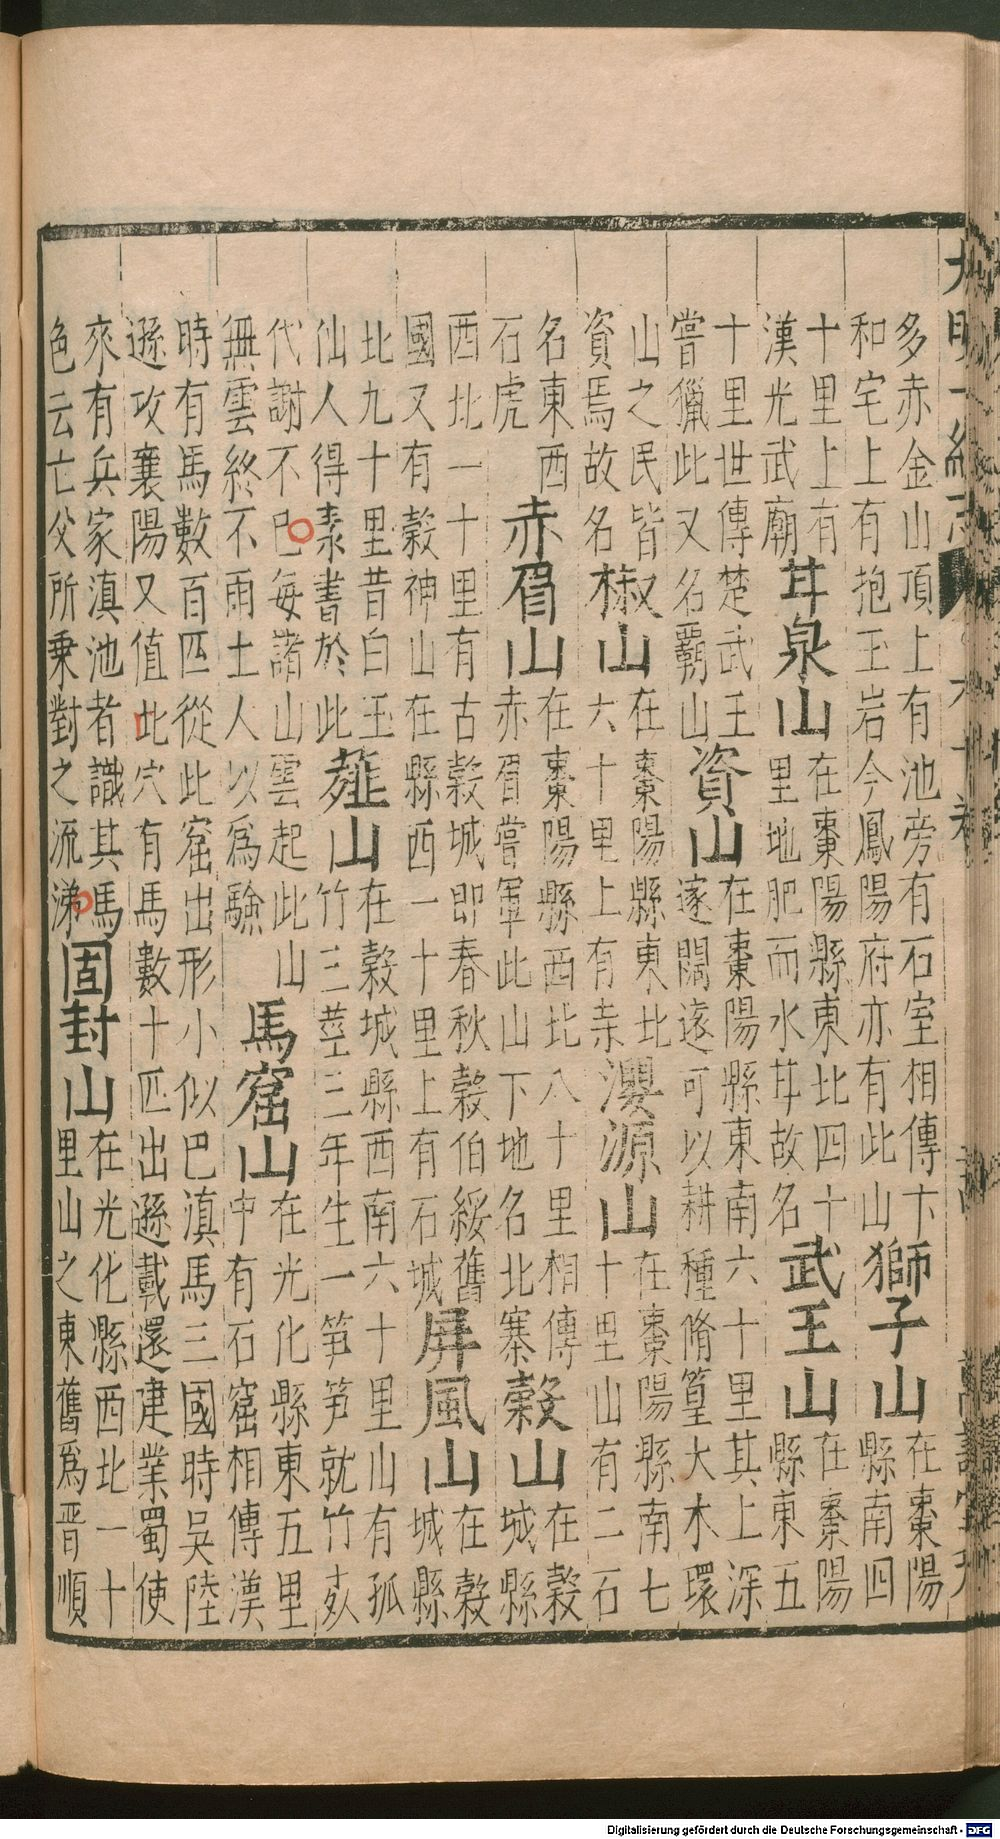 大明一統志
多赤金山頂上有池旁有石室相傳卞
和宅上有抱玉岩今鳳陽府亦有此山
獅子山
在棗陽
縣南四
十里上有
漢光武廟
甘泉山
在棗陽縣東北四十
里地肥而水甘故名
武王山
在棗陽
縣東五
十里世傳楚武王
嘗獵此又名覇山
資山
在棗陽縣東南六十里其上深
邃闊遠可以耕種脩篁大木環
山之民皆
資焉故名
椒山
在棗陽縣東北
六十里上有寺
源山
在棗陽縣南七
十里山有二石
名東西
石虎
赤眉山
在棗陽縣西北八十里相傳
赤眉嘗軍此山下地名北寨
榖山
在榖
城縣
西北一十里有古榖城即春秋榖伯綏舊
國又有榖神山在縣西一十里上有石城
屏風山
在榖
城縣
北九十里昔白玉
仙人得素書於此
薤山
在榖城縣西南六十里山有孤
竹三莖三年生一笋笋就竹
代謝不已每諸山雲起此山
無雲終不雨土人以爲驗
馬窟山
在光化縣東五里
中有石窟相傳漢
時有馬數百匹從此窟出形小似巴滇馬三國時吳陸
遜攻襄陽又值此穴有馬數十匹出遜載還建業蜀使
來有兵家滇池者識其馬
色云亡父所乗對之流涕
固封山
在光化縣西北一十
里山之東舊爲晋順
Digitalisierung gefördert durch die Deutsche Forschungsgemeinschaft - DFG